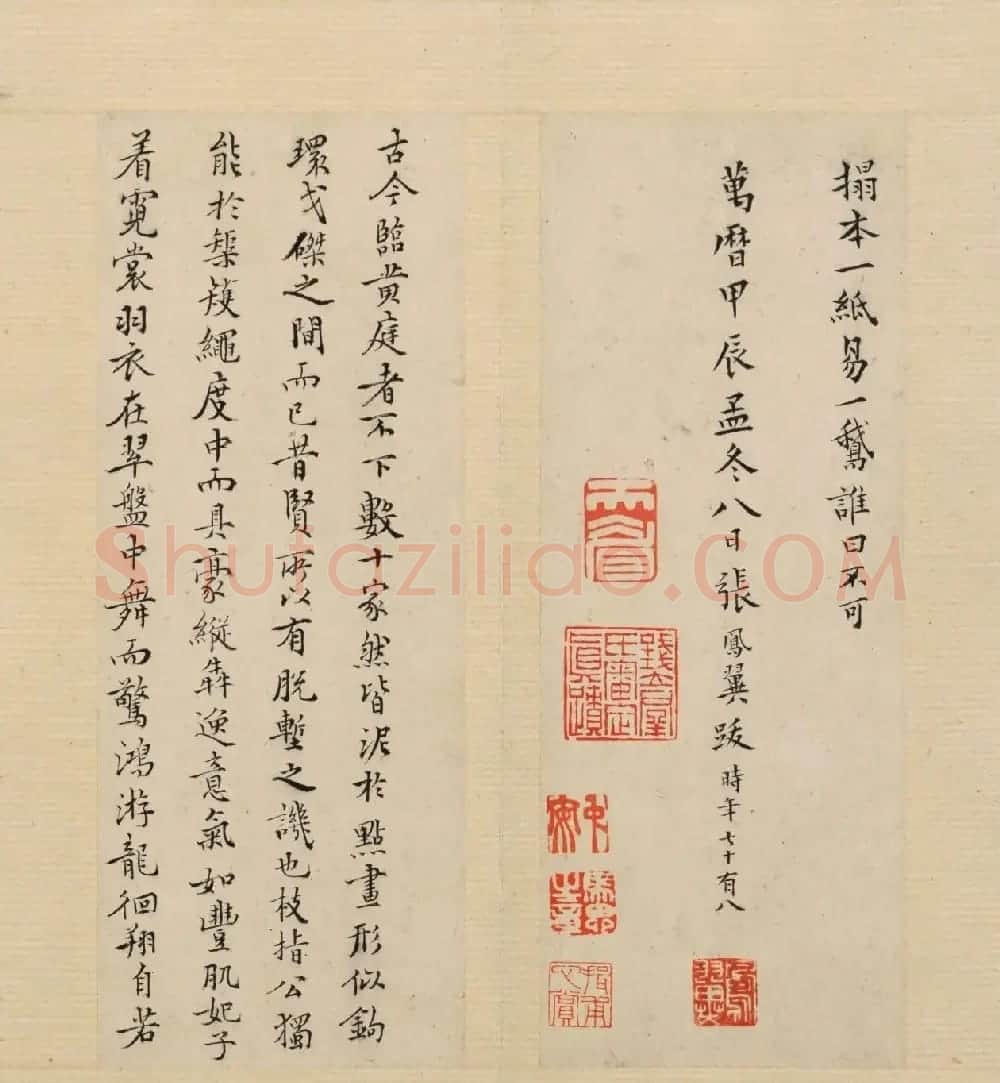 搨本一紙易一鵝誰曰不可
萬曆甲辰孟冬八日張鳳翼跋時年七十有八
古今臨黃庭者不下數十家然皆泥於點畫形似鉤
環戈磔之間而已昔賢所以有脫墼之譏也枝指公獨
能於榘矱繩度中而具豪縱犇逸意氣如豐肌妃子
着霓裳羽衣在翠盤中舞而驚鴻游龍徊翔自若
Shufaziliao.COM